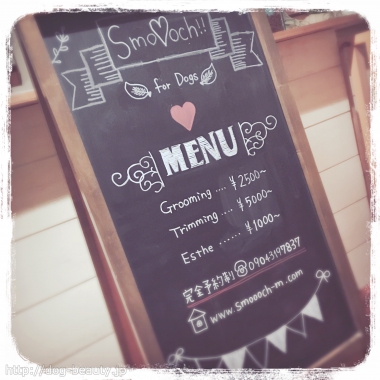 Smooch!!
for Dogs
MENU
Grooming .... ¥2500~
Trimming .... ¥5000~
Esthe ...... ¥1000~
完全予約制☎09043197837
www.smoooch-m.com
http://dog-beauty.jp